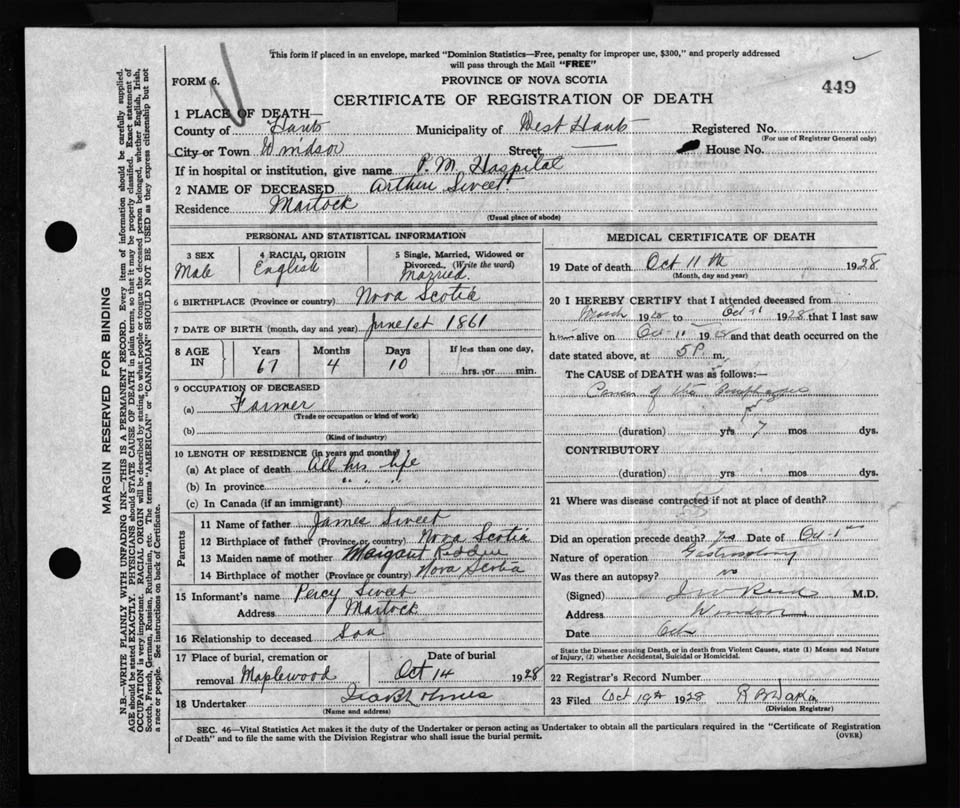 This form if placed in an envelope, marked "Dominion Statistics—Free, penalty for improper use, $300," and properly addressed
will pass through the Mail "FREE"
FORM 6.
PROVINCE OF NOVA SCOTIA
449
CERTIFICATE OF REGISTRATION OF DEATH
1 PLACE OF DEATH—
County of Hants Municipality of West Hants Registered No.
(For use of Registrar General only)
City or Town Windsor Street — House No.
If in hospital or institution, give name P. M. Hospital
2 NAME OF DECEASED Arthur Sweet
Residence Martock
(Usual place of abode)
PERSONAL AND STATISTICAL INFORMATION
3 SEX 4 RACIAL ORIGIN 5 Single, Married, Widowed or
Divorced, (Write the word)
Male English Married.
6 BIRTHPLACE (Province or country) Nova Scotia
7 DATE OF BIRTH (month, day and year) June 1st 1861
8 AGE IN Years Months Days If less than one day,
67 4 10 hrs. or min.
9 OCCUPATION OF DECEASED
(a) Farmer
(Trade or occupation or kind of work)
(b)
(Kind of industry)
10 LENGTH OF RESIDENCE (in years and months)
(a) At place of death All his life
(b) In province " " "
(c) In Canada (if an immigrant)
Parents
11 Name of father James Sweet
12 Birthplace of father (Province or country) Nova Scotia
13 Maiden name of mother Margaret
14 Birthplace of mother (Province or country) Nova Scotia
15 Informant's name Percy Sweet
Address Martock
16 Relationship to deceased Son
17 Place of burial, cremation or Date of burial
removal Maplewood Oct 14 1928
18 Undertaker Holmes
(Name and address)
MEDICAL CERTIFICATE OF DEATH
19 Date of death Oct 11th 1928
(Month, day and year)
20 I HEREBY CERTIFY that I attended deceased from
March 1928 to Oct 11 1928 that I last saw
him alive on Oct 11 1928 and that death occurred on the
date stated above, at 5 P. m.
The CAUSE of DEATH was as follows:—
Cancer of the
(duration) yrs 7 mos dys.
CONTRIBUTORY
(duration) yrs mos dys.
21 Where was disease contracted if not at place of death?
Did an operation precede death? Yes Date of Oct 1
Nature of operation
Was there an autopsy? no
(Signed) M.D.
Address Windsor
Date Oct
State the Disease causing Death, or in death from Violent Causes, state (1) Means and Nature
of Injury, (2) whether Accidental, Suicidal or Homicidal.
22 Registrar's Record Number
23 Filed Oct 19th 1928
(Division Registrar)
SEC. 46—Vital Statistics Act makes it the duty of the Undertaker or person acting as Undertaker to obtain all the particulars required in the "Certificate of Registration
of Death" and to file the same with the Division Registrar who shall issue the burial permit.
(OVER)
MARGIN RESERVED FOR BINDING
N.B.—WRITE PLAINLY WITH UNFADING INK—THIS IS A PERMANENT RECORD. Every item of information should be carefully supplied.
AGE should be stated EXACTLY. PHYSICIANS should STATE CAUSE OF DEATH in plain terms, so that it may be properly classified. Exact statement of
OCCUPATION is very important. RACIAL ORIGIN will be described by stating to what people or tongue the deceased person belonged, whether English, Irish,
Scotch, French, German, Russian, Ruthenian, etc. The terms "AMERICAN" or "CANADIAN" SHOULD NOT BE USED as they express citizenship but not
a race or people. See instructions on back of Certificate.